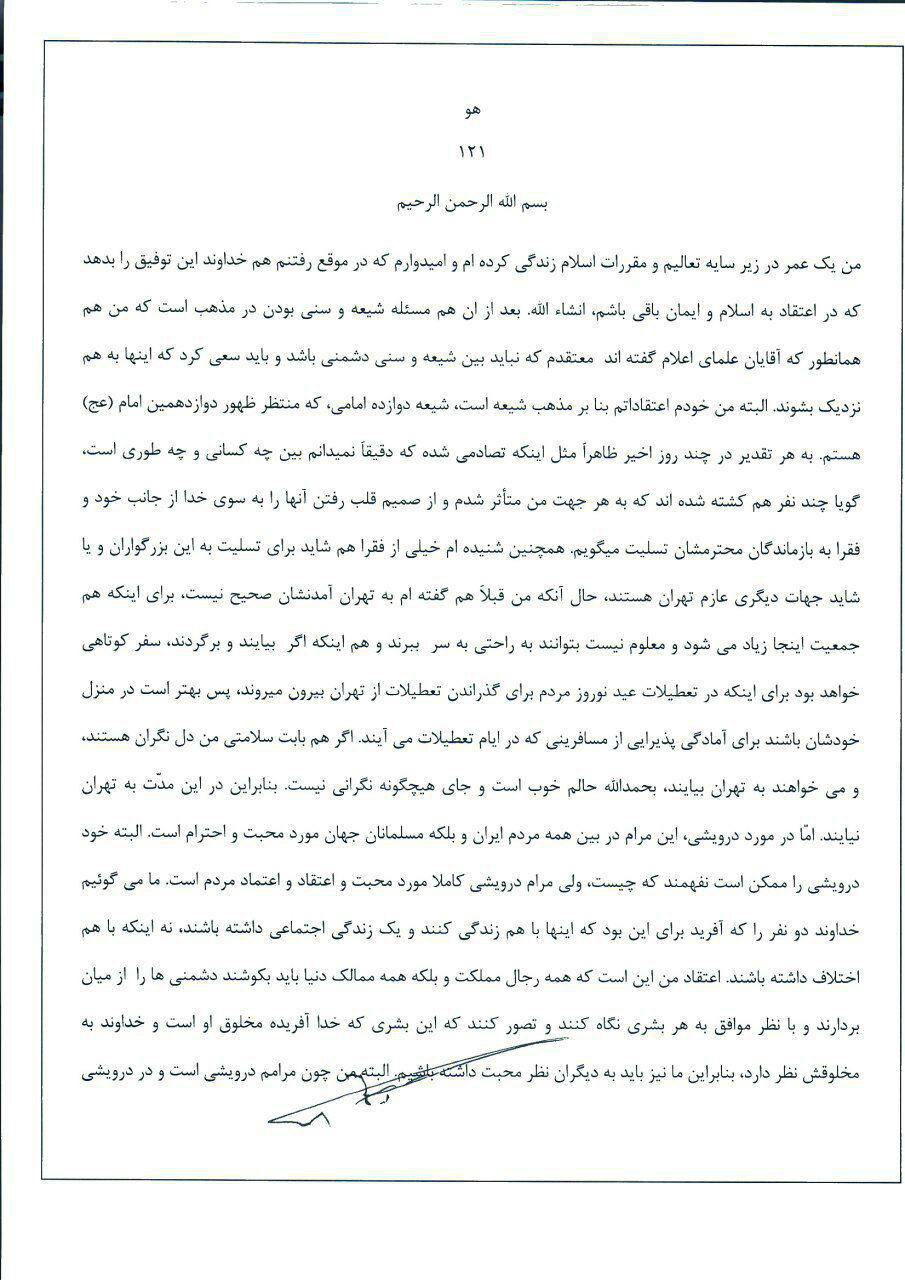 هو
۱۲۱
بسم الله الرحمن الرحیم
من یک عمر در زیر سایه تعالیم و مقررات اسلام زندگی کرده ام و امیدوارم که در موقع رفتنم هم خداوند این توفیق را بدهد
که در اعتقاد به اسلام و ایمان باقی باشم، انشاء الله. بعد از ان هم مسئله شیعه و سنی بودن در مذهب است که من هم
همانطور که آقایان علمای اعلام گفته اند معتقدم که نباید بین شیعه و سنی دشمنی باشد و باید سعی کرد که اینها به هم
نزدیک بشوند. البته من خودم اعتقاداتم بنا بر مذهب شیعه است، شیعه دوازده امامی، که منتظر ظهور دوازدهمین امام (عج)
هستم. به هر تقدیر در چند روز اخیر ظاهراً مثل اینکه تصادمی شده که دقیقاً نمیدانم بین چه کسانی و چه طوری است،
گویا چند نفر هم کشته شده اند که به هر جهت من متأثر شدم و از صمیم قلب رفتن آنها را به سوی خدا از جانب خود و
فقرا به بازماندگان محترمشان تسلیت میگویم. همچنین شنیده ام خیلی از فقرا هم شاید برای تسلیت به این بزرگواران و یا
شاید جهات دیگری عازم تهران هستند، حال آنکه من قبلاً هم گفته ام به تهران آمدنشان صحیح نیست، برای اینکه هم
جمعیت اینجا زیاد می شود و معلوم نیست بتوانند به راحتی به سر ببرند و هم اینکه اگر بیایند و برگردند، سفر کوتاهی
خواهد بود برای اینکه در تعطیلات عید نوروز مردم برای گذراندن تعطیلات از تهران بیرون میروند، پس بهتر است در منزل
خودشان باشند برای آمادگی پذیرایی از مسافرینی که در ایام تعطیلات می آیند. اگر هم بابت سلامتی من دل نگران هستند،
و می خواهند به تهران بیایند، بحمدالله حالم خوب است و جای هیچگونه نگرانی نیست. بنابراین در این مدّت به تهران
نیایند. امّا در مورد درویشی، این مرام در بین همه مردم ایران و بلکه مسلمانان جهان مورد محبت و احترام است. البته خود
درویشی را ممکن است نفهمند که چیست، ولی مرام درویشی کاملا مورد محبت و اعتقاد و اعتماد مردم است. ما می گوئیم
خداوند دو نفر را که آفرید برای این بود که اینها با هم زندگی کنند و یک زندگی اجتماعی داشته باشند، نه اینکه با هم
اختلاف داشته باشند. اعتقاد من این است که همه رجال مملکت و بلکه همه ممالک دنیا باید بکوشند دشمنی ها را از میان
بردارند و با نظر موافق به هر بشری نگاه کنند و تصور کنند که این بشری که خدا آفریده مخلوق او است و خداوند به
مخلوقش نظر دارد، بنابراین ما نیز باید به دیگران نظر محبت داشته باشیم. البته من چون مرامم درویشی است و در درویشی